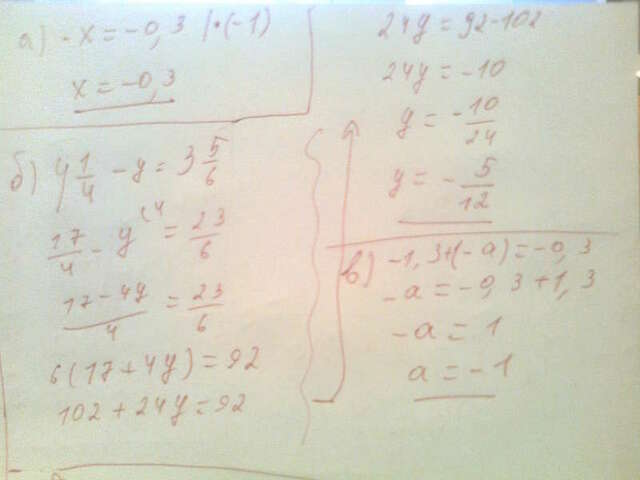 а) -x = -0,3 |·(-1)
x = -0,3
б) 4 1/4 - y = 3 5/6
17/4 - y^(4 = 23/6
(17 - 4y)/4 = 23/6
6(17+4y) = 92
102+24y = 92
24y = 92-102
24y = -10
y = -10/24
y = -5/12
в) -1,3+(-a) = -0,3
-a = -0,3+1,3
-a = 1
a = -1